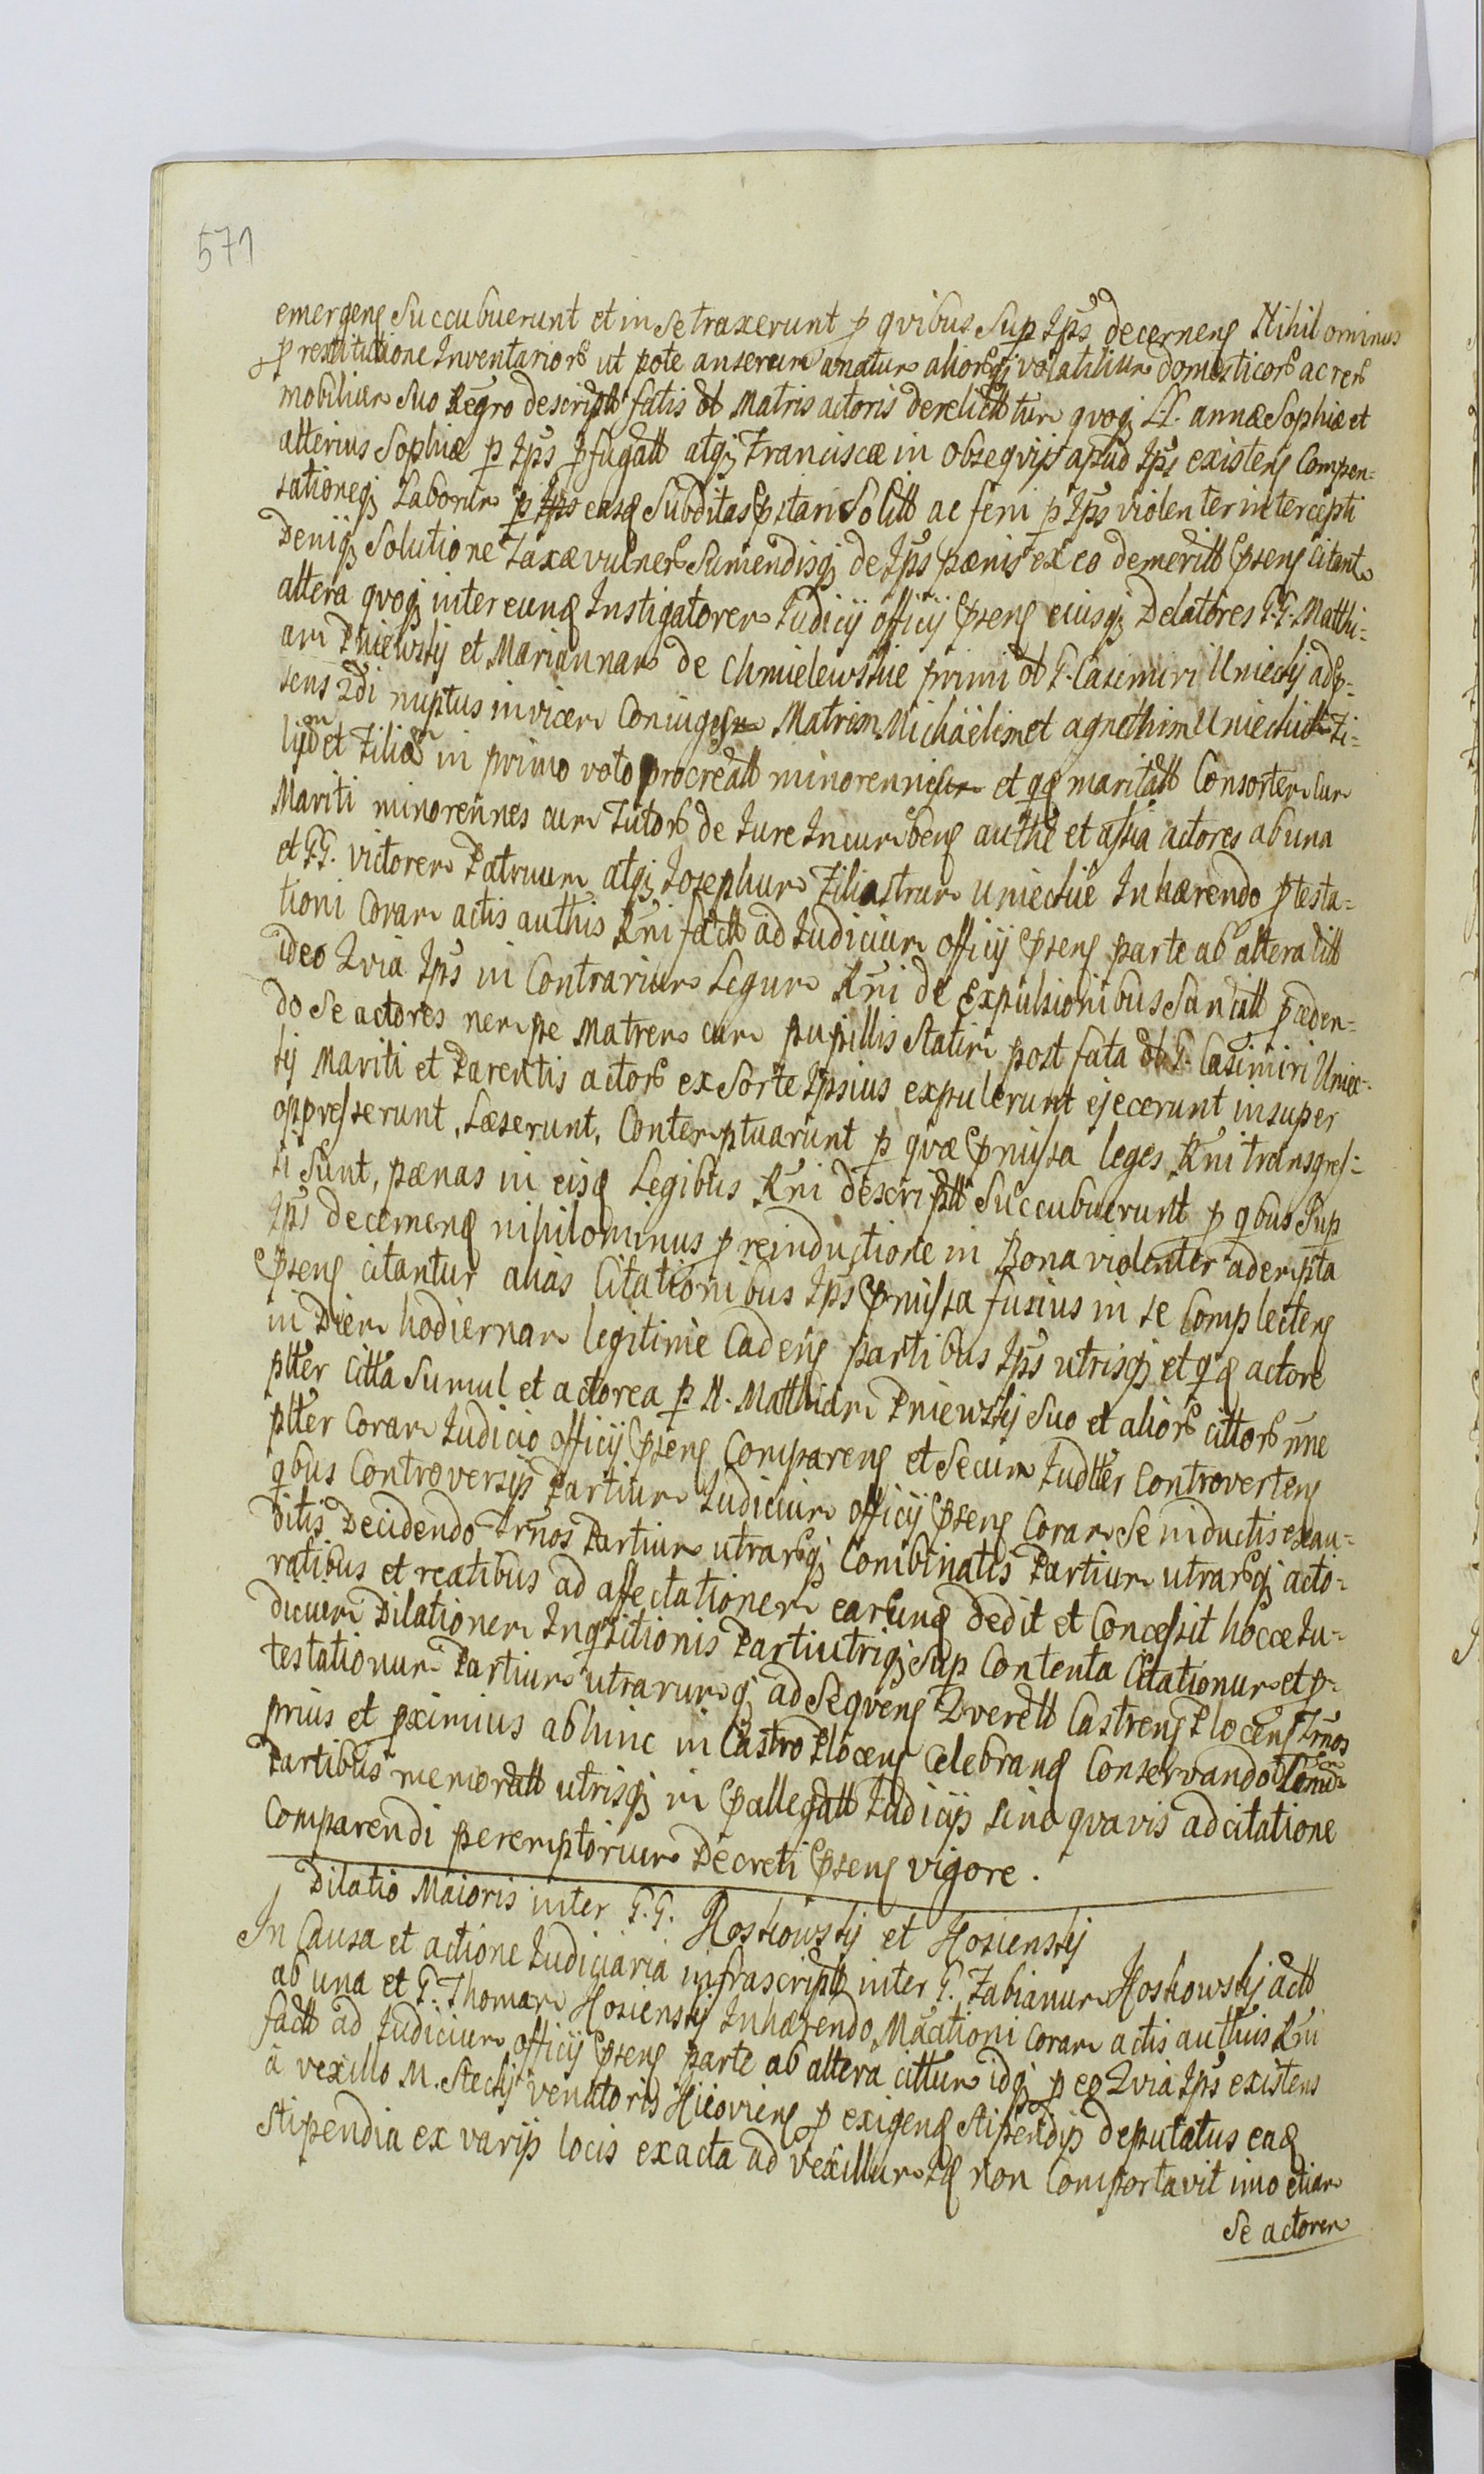 571
emergens Succubuerunt et in se traxerunt p quibus Sup Ips decernens Nihilominus
p restitutione Inventarior ut pote anserum anatum aliorqz volatilium domesticor ac rer
mobilium Suo Regro descriptt fatis ol Matris actoris derelictt tum quoqz LL. annæ Sophiæ et
alterius Sophiæ p Ips pfugatt atqz Franciscæ in Obsequijs apud Ips existens Compen=
sationeqz Laborum p Ips easq Subditas pstari Solitt ac feni p Ips violenter intercepti
Deniqz Solutione Taxæ vulner Sumendisqz de Ips pænis ex eo demeritt psens Citant
altera quoqz inter eunq Instigatorem Judicij officij psens eiusqz Delatores G.G. Matthi=
am Pniewskij et Mariannam de Chmielewskie primi ol G. Casimiri Uniecskij adp=
sens 2di nuptus invicem Coniuges Matrem Michaëlem et agnethim Unieckie Fi=
lium et Filiam in primo voto procreatt minorennes et qq maritatt Consortem Cum
Mariti minorennes cum Tutor de Jure Incumbens authe et assia actores ab una
et G.G. victorem Patruum atqz Josephum Filiastrum Unieckie Inhærendo ptesta=
tioni Coram actis authis Rni factt ad Judicium officij psens parte ab altera citt
ideo Quia Ips in Contrarium Legum Rni de Expulsionibus Sancitt præden=
do Se actores nempe Matrem cum pupillis Statim post fata ol G. Casimiri Uniec=
kij Mariti et Parentis actor ex Sorte Ipsius expulerunt ejecerunt insuper
oppresserunt, Læserunt, Contemptuarunt p quæ pmissa leges Rni transgres=
si Sunt, pænas in eisq Legibus Rni descriptt Succubuerunt p qbus Sup
Ips decernenq nihilominus p reinductione in Bona violenter adempta
psens citantur alias Citationibus Ips pmissa fusius in se Complectens
in Diem hodiernam legitime Cadens partibus Ips utrisqz et qq actore
pltter Citta Simul et actorea p N. Matthiam Pniewskij Suo et alior cittor nne
pltter Coram Judicio officij psens Comparens et Secum Judtter Controvertens
qbus Controversijs Partium Judicium officij psens Coram Se inductis exau=
ditis Decidendo Trnos Partium utrarqz Combinatis Partium utrarqz acto=
ratibus et reatibus ad affectationem earunq dedit et Concessit hocce Ju=
dicium Dilationem Inqsitionis Parti utriqz Sup Contenta Citationum et p=
testationum Partium utrarumqz ad Sequens Querett Castrens Plocens Trnos
prius et pximius abhinc in Castro Plocens Celebranq Conservando Trnum
Partibus memoratt utrisqz in pallegatt Judicijs sine quavis adcitatione
Comparendi peremptorium Decreti psens vigore.
Dilatio Maioris inter G.G. Roskowskij et Hosienskij
In Causa et actione Judiciaria infrascriptt inter G. Fabianum Hoskowskij actt
ab una et G. Thomam Hosienskij Inhærendo Maationi coram actis authuis Rni
factt ad Judicium officij psens parte ab altera cittum idqz p eo Quia Ips existens
à vexillo M. Steckij venatoris Kijoviens p exigenq Stipendijs deputatus eaq
Stipendia ex varijs locis exacta ad vexillum Iq non Comportavit imo etiam
Se actorem